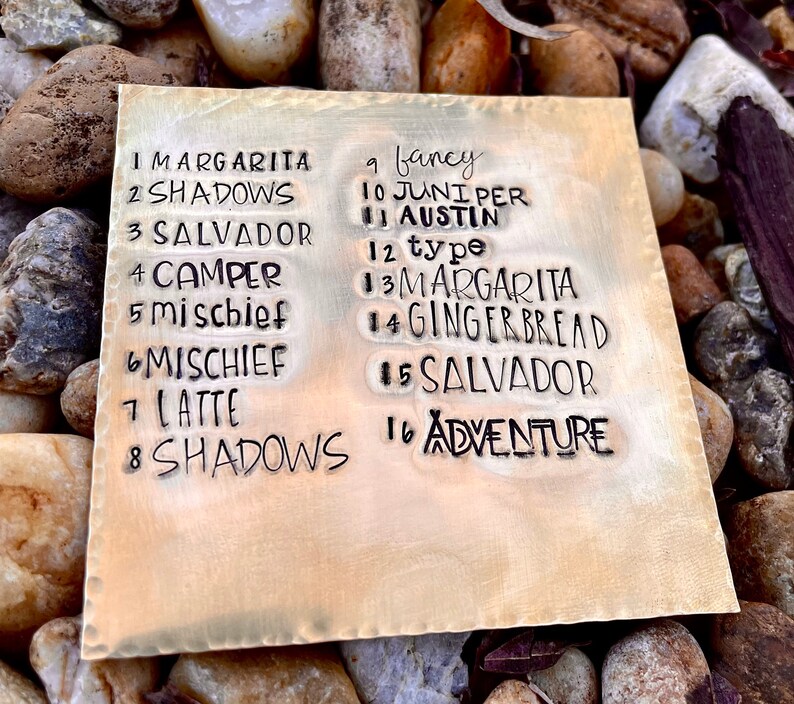 1 MARGARITA
2 SHADOWS
3 SALVADOR
4 CAMPER
5 mischief
6 MISCHIEF
7 LATTE
8 SHADOWS
9 fancy
10 JUNIPER
11 AUSTIN
12 type
13 MARGARITA
14 GINGERBREAD
15 SALVADOR
16 ADVENTURE